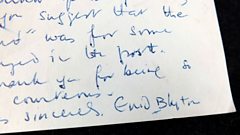 you suggest that the
was for some
in the post.
thank you for being so
courteous.
sincerely, Enid Blyton